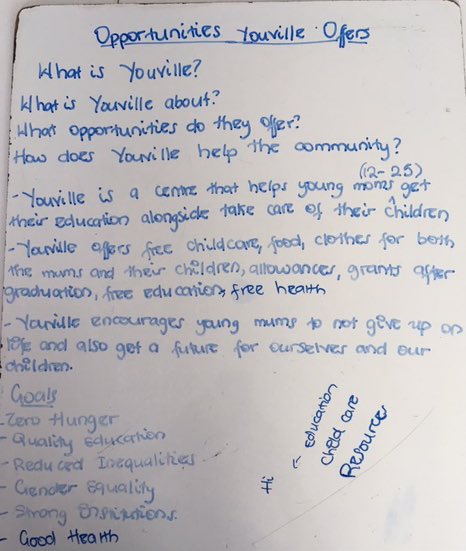 Opportunities Youville Offers
What is Youville?
What is Youville about?
What opportunities do they offer?
How does Youville help the community?
(12-25)
- Youville is a centre that helps young moms ^ get
their education alongside take care of their children
- Youville offers free childcare, food, clothes for both
the mums and their children, allowances, grants after
graduation, free education, free health
- Youville encourages young mums to not give up on
life and also get a future for ourselves and our
children.
Goals
- Zero Hunger
- Quality Education
- Reduced Inequalities
- Gender Equality
- Strong Institutions.
- Good Health
Hi ← Education
Child care
Resources